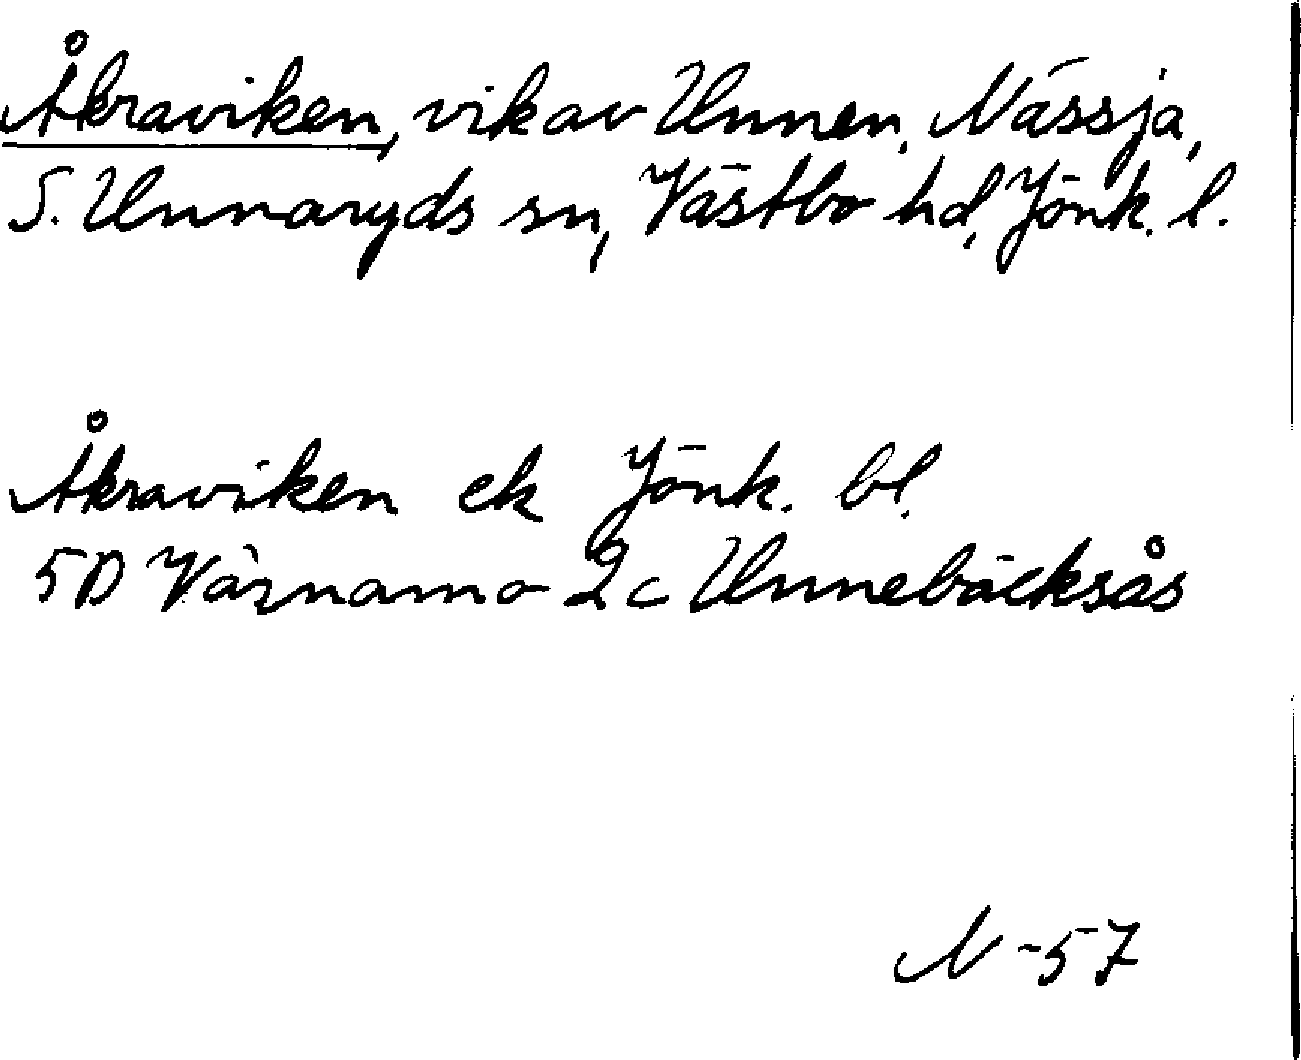 Åkraviken, vik av Unnen, Nässja,
S. Unnaryds sn, Västbo hd, Jönk. l.
Åkraviken ek Jönk. bl.
5D Värnamo 2c Unnebäcksås
N -57